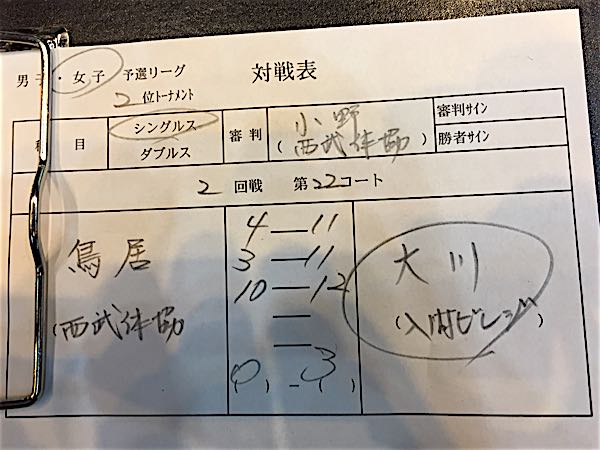 男子・女子 予選リーグ 対戦表
2位トーナメント
種目 シングルス ダブルス 審判 小野 (西武体協) 審判サイン 勝者サイン
2 回戦 第22コート
鳥居 (西武体協)
4 — 11
3 — 11
10 — 12
—
—
(0) - (3)
大川 (入間ビレッジ)